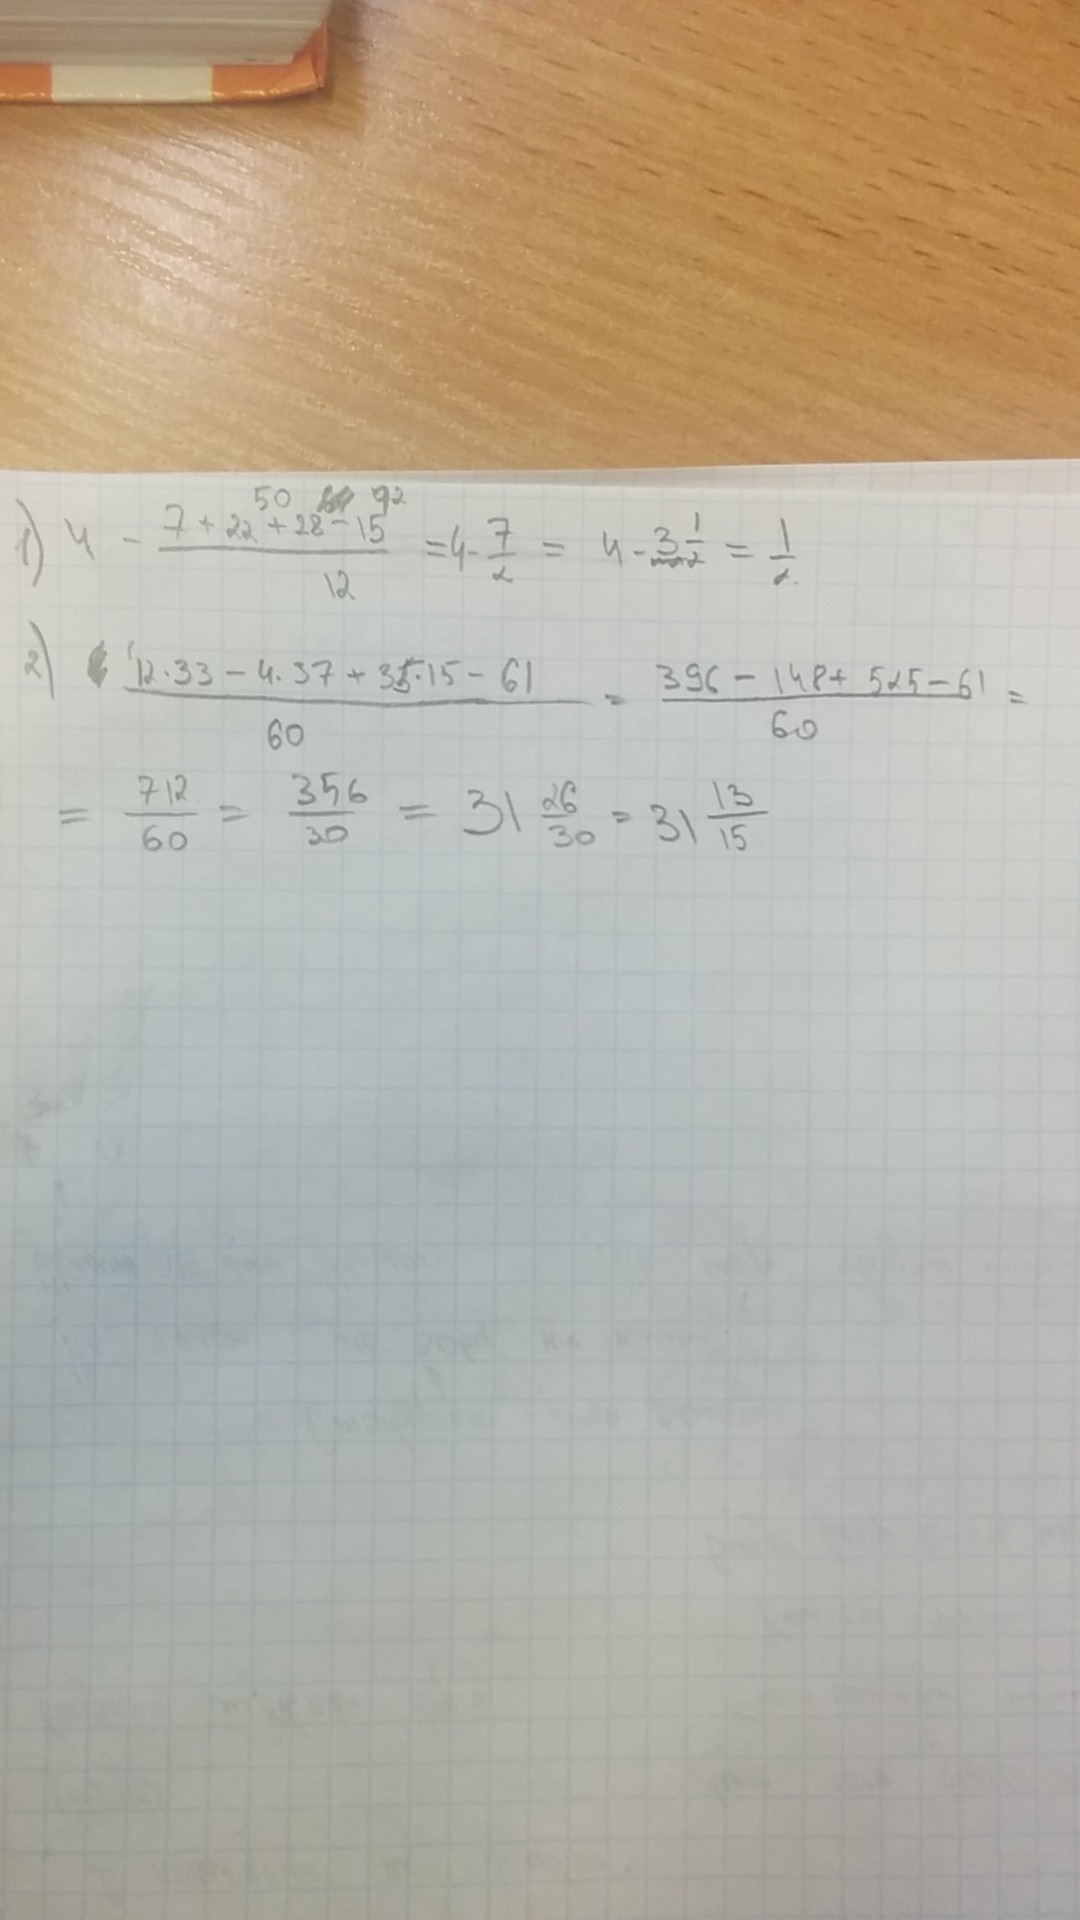 50 92
1) 4 - 7 + 22 + 28 - 15 / 12 = 4 - 7/2 = 4 - 3 1/2 = 1/2
2) 12·33 - 4·37 + 35·15 - 61 / 60 = 396 - 148 + 525 - 61 / 60 =
= 712/60 = 356/30 = 31 26/30 = 31 13/15